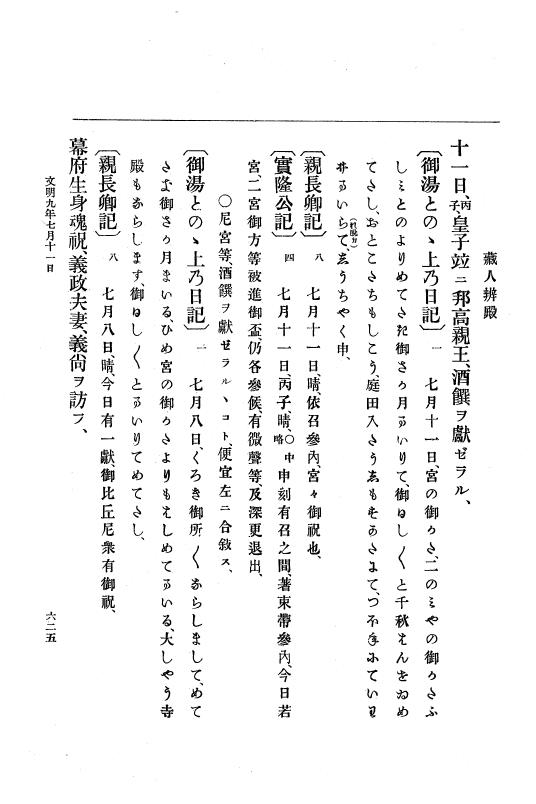 藏人辨殿
十一日、丙子、皇子竝ニ邦高親王、酒饌ヲ獻ゼラル、
〔御湯とのゝ上乃日記〕一 七月十一日、宮の御かさ、二のミやの御かさふ
しミとのよりめてさた御さか月まいりて、御ねし／＼と千秋えんをゐめ
てさし、おとこさちもしこう、庭田入さうゑもをあさまて、つ
井まいらて、ゑうちやく申、
〔親長卿記〕八 七月十一日、晴、依召參內、宮々御祝也、
〔實隆公記〕四 七月十一日、丙子、晴、○中略 申刻有召之間、著束帶參內、今日若
宮、二宮御方等被進御盃、仍各參候、有微聲等、及深更退出、
○尼宮等、酒饌ヲ獻ゼラルヽコト、便宜左ニ合敍ス、
〔御湯とのゝ上乃日記〕一 七月八日、くろき御所／＼ならしまして、めて
さた御さか月まいる、ひめ宮の御かさよりもえしめてまいる、大しやう寺
殿もならします、御ねし／＼とまいりてめてさし、
〔親長卿記〕八 七月八日、晴、今日有一獻、御比丘尼衆有御祝、
幕府生身魂祝、義政夫妻、義尙ヲ訪フ、
文明九年七月十一日
六二五